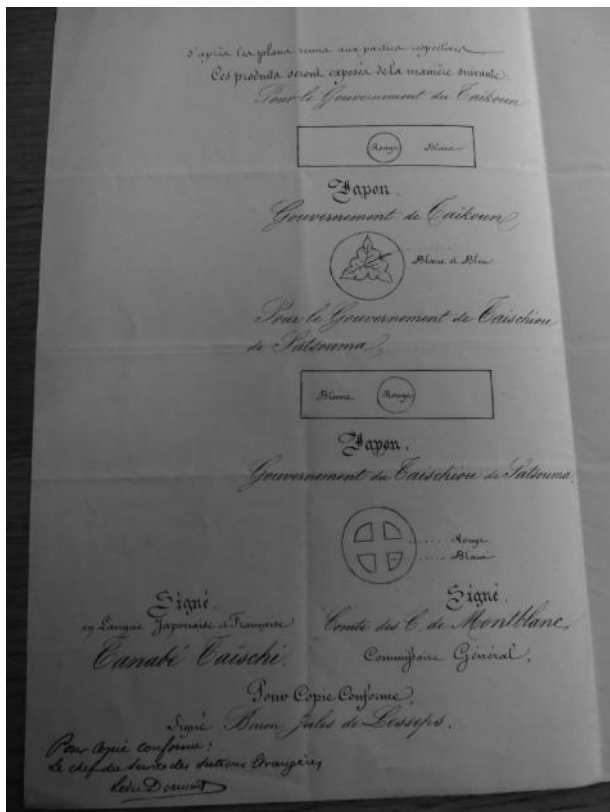 d'après les plans remis aux parties respectives
Ces produits seront exposés de la manière suivante:
Pour le Gouvernement du Taïkoun
Rouge Blanc
Japon.
Gouvernement de Taïkoun
Blanc et Bleu
Pour le Gouvernement de Taischiou
de Satsouma,
Blanc Rouge
Japon.
Gouvernement du Taischiou de Satsouma.
Rouge
Blanc
Signé
en Langue Japonaise et Française
Tanabé Taïschi.
Signé.
Comte des C. de Montblanc,
Commissaire Général,
Pour Copie Conforme,
Signé Baron Jules de Lesseps.
Pour copie conforme:
Le chef du service des sections étrangères